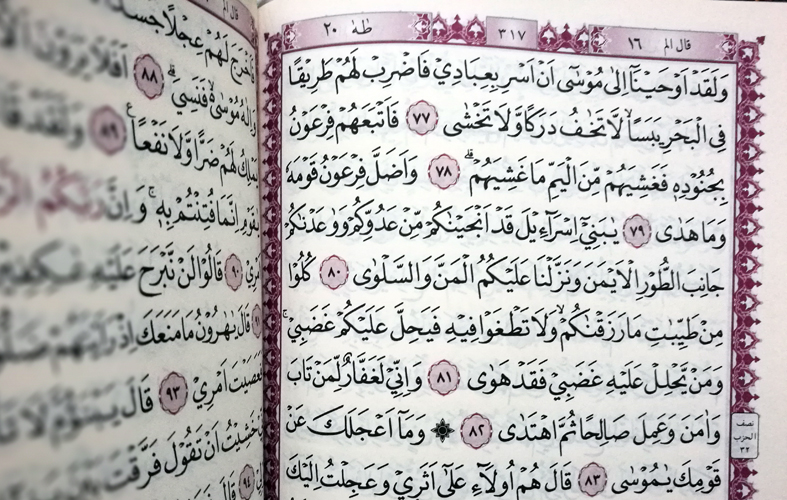 قال الم ١٦
٣١٧
طٰهٰ ٢٠
وَلَقَدْ اَوْحَيْنَآ اِلٰى مُوْسٰٓى اَنْ اَسْرِ بِعِبَادِيْ فَاضْرِبْ لَهُمْ طَرِيْقًا
فِى الْبَحْرِ يَبَسًاۙ لَّا تَخٰفُ دَرَكًا وَّلَا تَخْشٰى ٧٧ فَاَتْبَعَهُمْ فِرْعَوْنُ
بِجُنُوْدِهٖ فَغَشِيَهُمْ مِّنَ الْيَمِّ مَا غَشِيَهُمْۗ ٧٨ وَاَضَلَّ فِرْعَوْنُ قَوْمَهٗ
وَمَا هَدٰى ٧٩ يٰبَنِيْٓ اِسْرَاۤءِيْلَ قَدْ اَنْجَيْنٰكُمْ مِّنْ عَدُوِّكُمْ وَوٰعَدْنٰكُمْ
جَانِبَ الطُّوْرِ الْاَيْمَنَ وَنَزَّلْنَا عَلَيْكُمُ الْمَنَّ وَالسَّلْوٰى ٨٠ كُلُوْا
مِنْ طَيِّبٰتِ مَا رَزَقْنٰكُمْۙ وَلَا تَطْغَوْا فِيْهِ فَيَحِلَّ عَلَيْكُمْ غَضَبِيْۚ
وَمَنْ يَّحْلِلْ عَلَيْهِ غَضَبِيْ فَقَدْ هَوٰى ٨١ وَاِنِّيْ لَغَفَّارٌ لِّمَنْ تَابَ
وَاٰمَنَ وَعَمِلَ صَالِحًا ثُمَّ اهْتَدٰى ٨٢ ۞ وَمَآ اَعْجَلَكَ عَنْ
قَوْمِكَ يٰمُوْسٰى ٨٣ قَالَ هُمْ اُولَاۤءِ عَلٰٓى اَثَرِيْ وَعَجِلْتُ اِلَيْكَ
نصف
الحزب
٣٢
قال الم
فَاَخْرَجَ لَهُمْ عِجْلًا جَسَدًا
وَاِلٰهُ مُوْسٰى فَنَسِيَۗ ٨٨ اَفَلَا يَرَوْنَ
يَمْلِكُ لَهُمْ ضَرًّا وَّلَا نَفْعًا ࣖ ٨٩ وَلَقَدْ قَالَ
يٰقَوْمِ اِنَّمَا فُتِنْتُمْ بِهٖۚ وَاِنَّ رَبَّكُمُ
اَمْرِيْ ٩٠ قَالُوْا لَنْ نَّبْرَحَ عَلَيْهِ عٰكِفِيْنَ
قَالَ يٰهٰرُوْنُ مَا مَنَعَكَ اِذْ رَاَيْتَهُمْ
اَفَعَصَيْتَ اَمْرِيْ ٩٣ قَالَ يَبْنَؤُمَّ لَا
خَشِيْتُ اَنْ تَقُوْلَ فَرَّقْتَ
٩٤ قَالَ